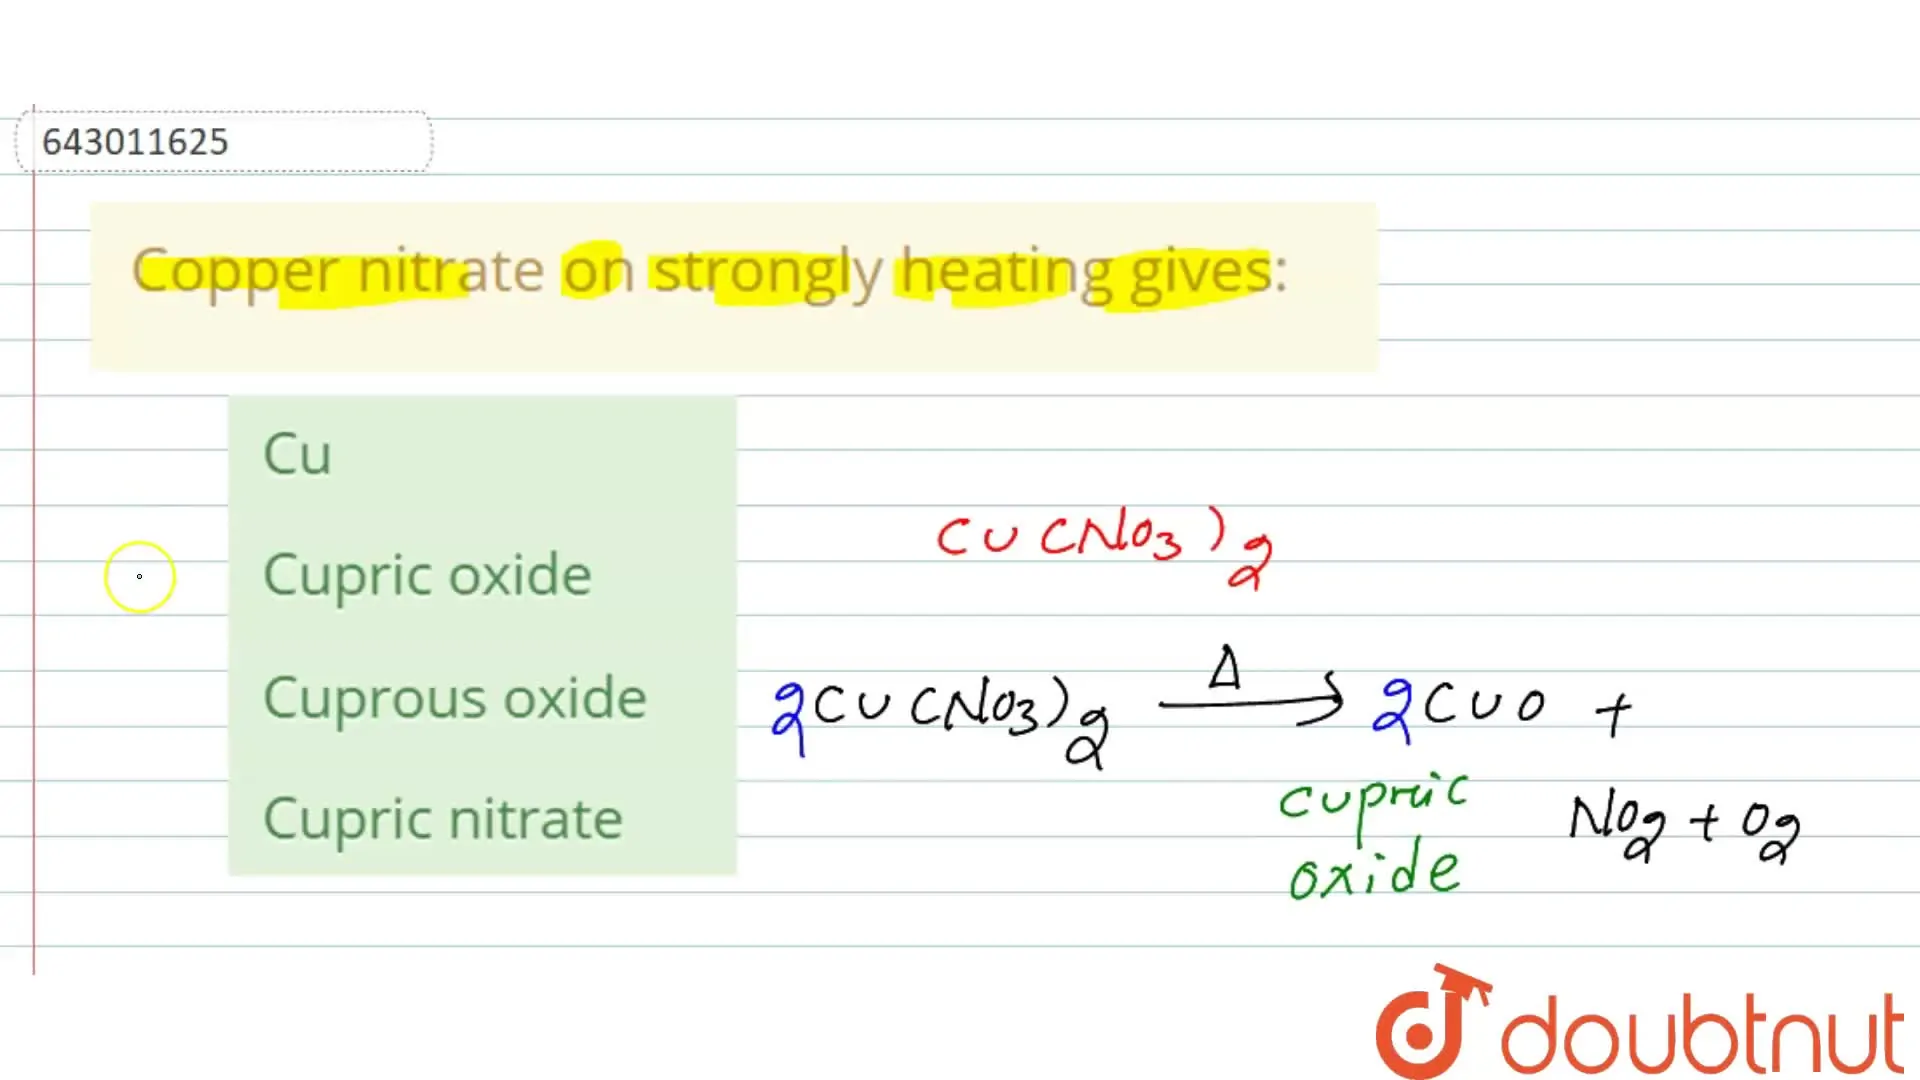 643011625
Copper nitrate on strongly heating gives:
Cu
Cupric oxide
Cuprous oxide
Cupric nitrate
Cu(NO3)2
2Cu(NO3)2 Δ→ 2CuO +
cupric
oxide
NO2 + O2
doubtnut